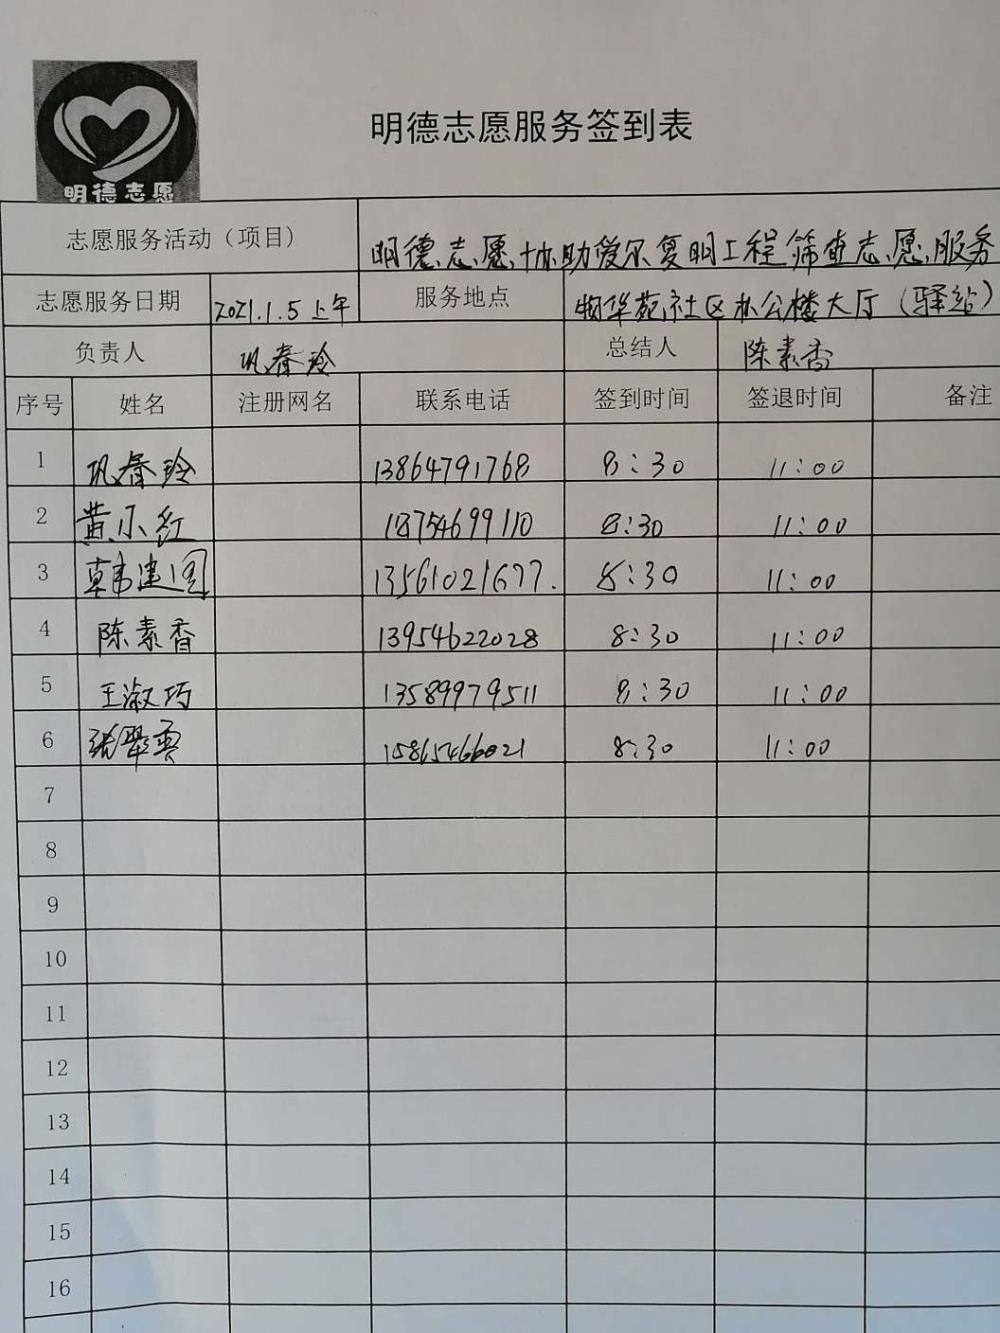 明德志愿
明德志愿服务签到表
志愿服务活动（项目） 明德志愿协助爱尔复明工程筛查志愿服务
志愿服务日期 2021.1.5上午 服务地点 物华苑社区办公楼大厅（驿站）
负责人 巩春玲 总结人 陈素香
序号 姓名 注册网名 联系电话 签到时间 签退时间 备注
1 巩春玲 13864791768 8:30 11:00
2 黄小红 18754699110 8:30 11:00
3 韩建国 13561021677. 8:30 11:00
4 陈素香 13954622028 8:30 11:00
5 王淑巧 13589979511 8:30 11:00
6 张翠 15865466021 8:30 11:00
7
8
9
10
11
12
13
14
15
16